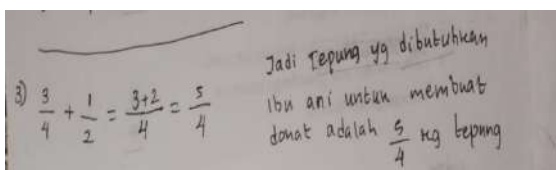 3) 3/4 + 1/2 = 3+2/4 = 5/4
Jadi Tepung yg dibutuhkan
ibu ani untuk membuat
donat adalah 5/4 kg tepung